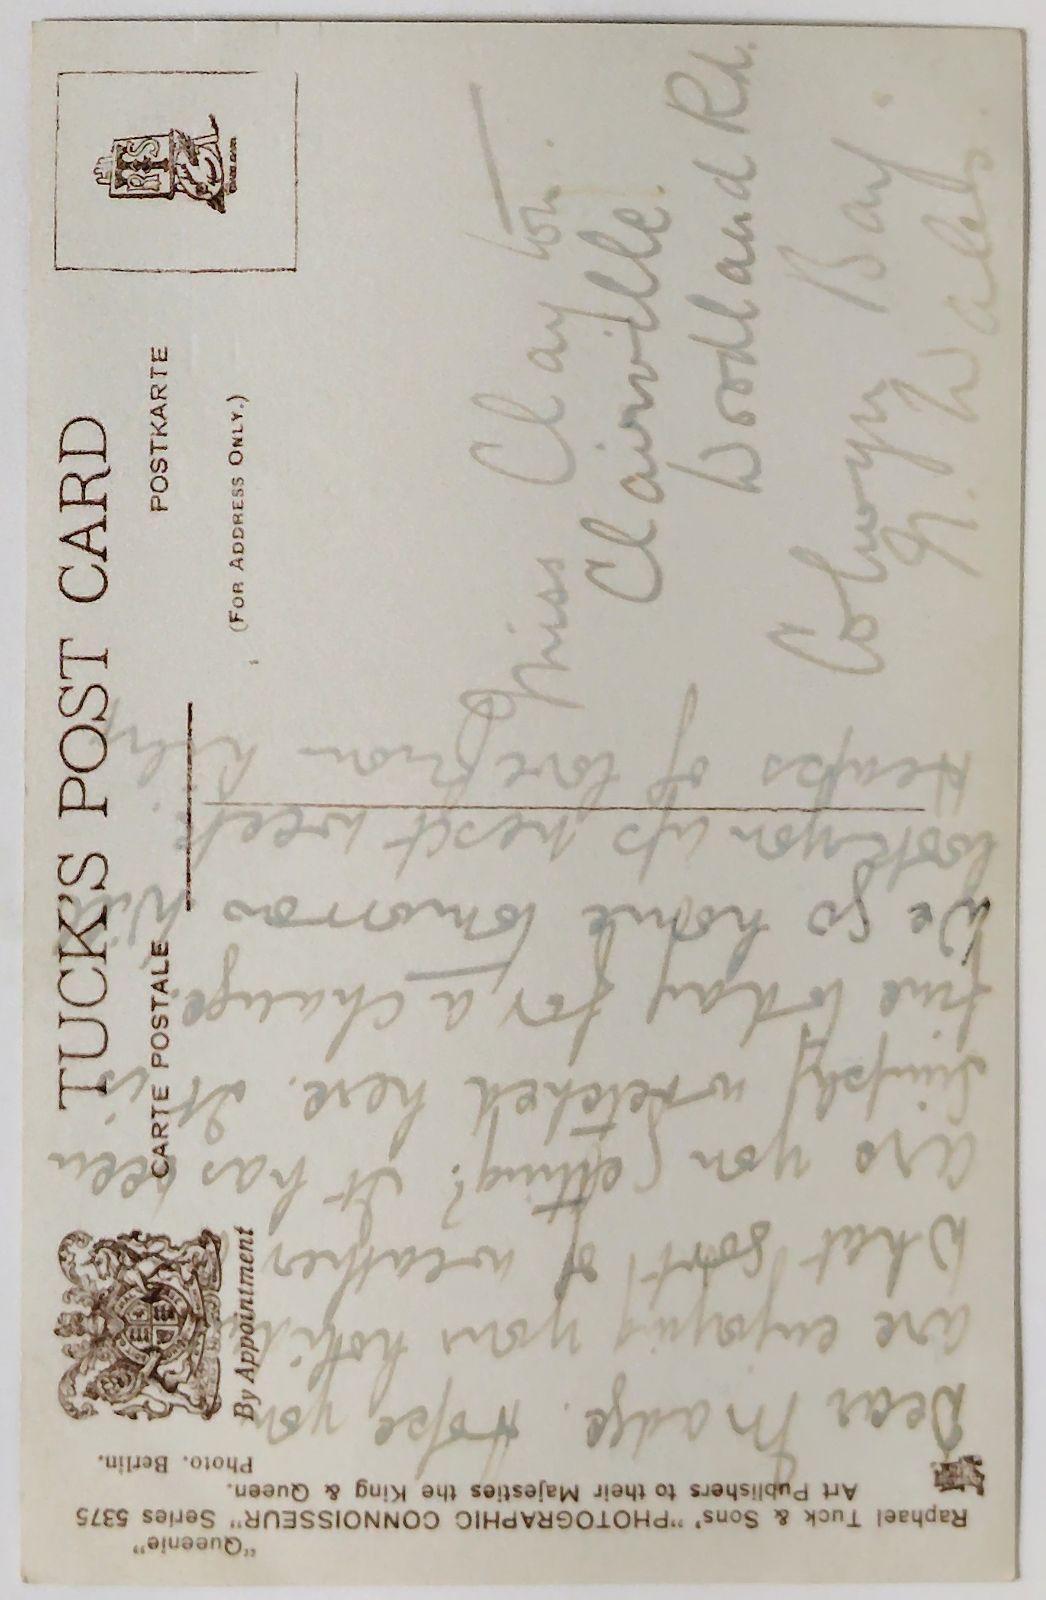 TUCK'S POST CARD
CARTE POSTALE
POSTKARTE
(FOR ADDRESS ONLY.)
By Appointment
RTS
Miss Clayton.
Clairville.
Woodland Rd.
Colwyn Bay.
N. Wales.
Dear Madge. Hope you
are enjoying your
What sort of weather
are you getting? It has been
simply wretched here. It is
fine today for a change.
We go home tomorrow Will
look you up next week
Heaps of love from
"Queenie"
Raphael Tuck & Sons' "PHOTOGRAPHIC CONNOISSEUR" Series 5375
Art Publishers to their Majesties the King & Queen.
Photo. Berlin.